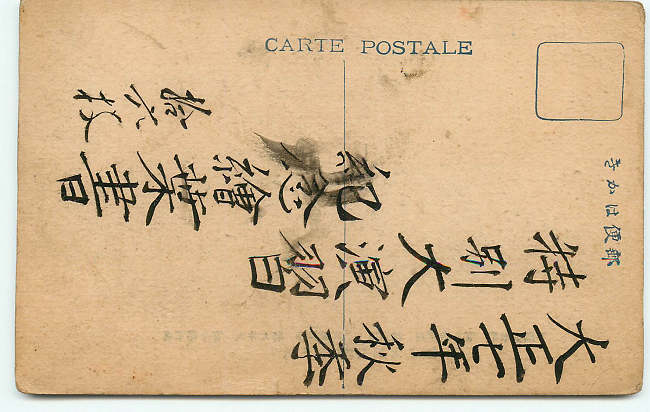 CARTE POSTALE
郵便はかき
大正七年秋季
特別大演習
紀念繪葉書
拾六枚